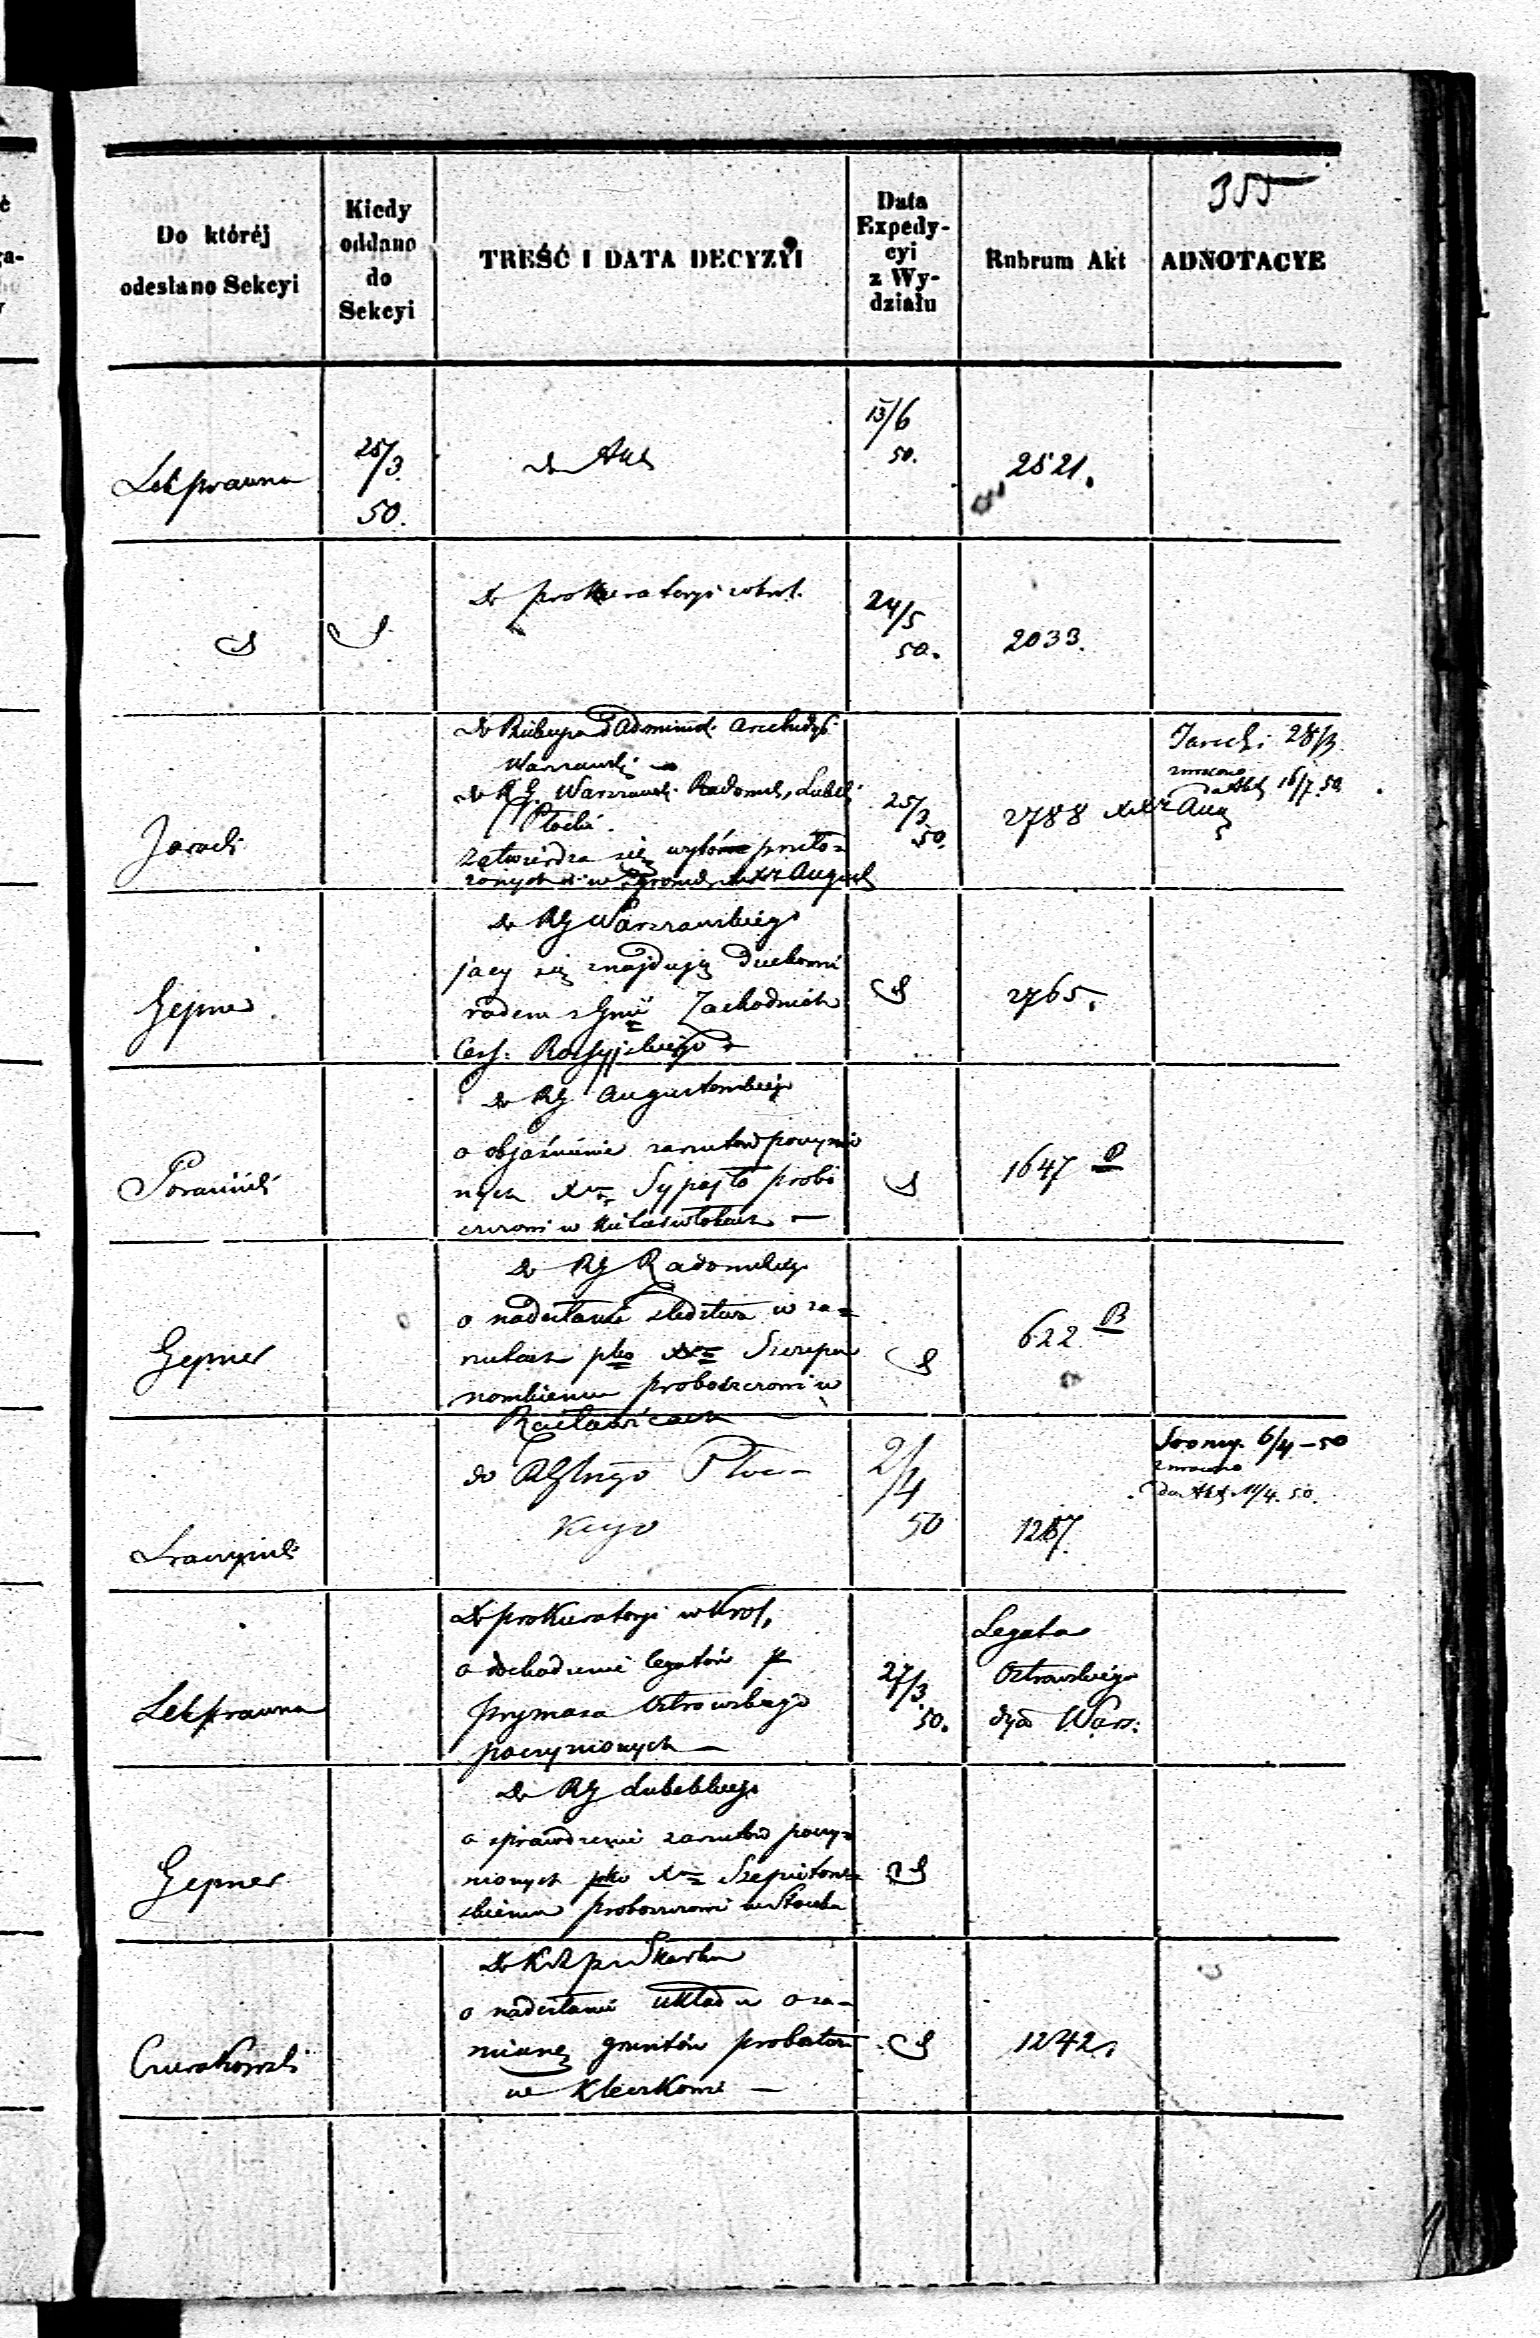 355
Do któréj
odesłano Sekcyi
Kiedy
oddano
do
Sekcyi
TREŚĆ I DATA DECYZYI
Data
Expedy-
cyi
z Wy-
działu
Rubrum Akt
ADNOTACYE
Sek prawna
25/3.
50.
do Akt
13/6
50.
2521.
do prokuratoryi w Król.
24/5
50.
2033.
Jarocki
do Biskupa Administ. Archidyec.
Warszawski
do R.G. Warszawsk. Radomsk, Lubel.
Płocki.
zatwierdza się wybór przeło-
żonych w Zgromadz. XX August
25/3
50.
2788 XX Aug
28/3
zwrócono
do Akt 16/7 50.
Gepner
do RG Warszawskiego
jacy się znajdują Duchowni
rodem z Gnii Zachodnich
Cess: Rossyjskiego
2765.
do RG Augustowskiego
o objaśnienie zarzutów poczynio
nych Xu Sypajło probo
szczowi w
1647 D
Gepner
do RG Radomskiego
o nadesłanie śledztwa w za-
rzutach pko Xu
nowskiemu proboszczowi w
Racławicach
622 B
do RG Płoc-
kiego
2/4
50
1267.
6/4 - 50
zwrócono
do Akt 11/4. 50.
Sek prawna
do prokuratoryi w Krol,
o dochodzenie legatów p
prymasa Ostrowskiego
poczynionych
27/3.
50.
Legata
Ostrowskiego
dyec Wars:
Gepner
do RG Lubelskiego
o sprawdzenie zarzutów poczy-
nionych pko Xu Szepietow-
skiemu proboszczowi w Stoczku
do KR p i Skarbu
o nadesłanie układu o za-
mianę gruntów probostw
we Kleczkowie
1242.